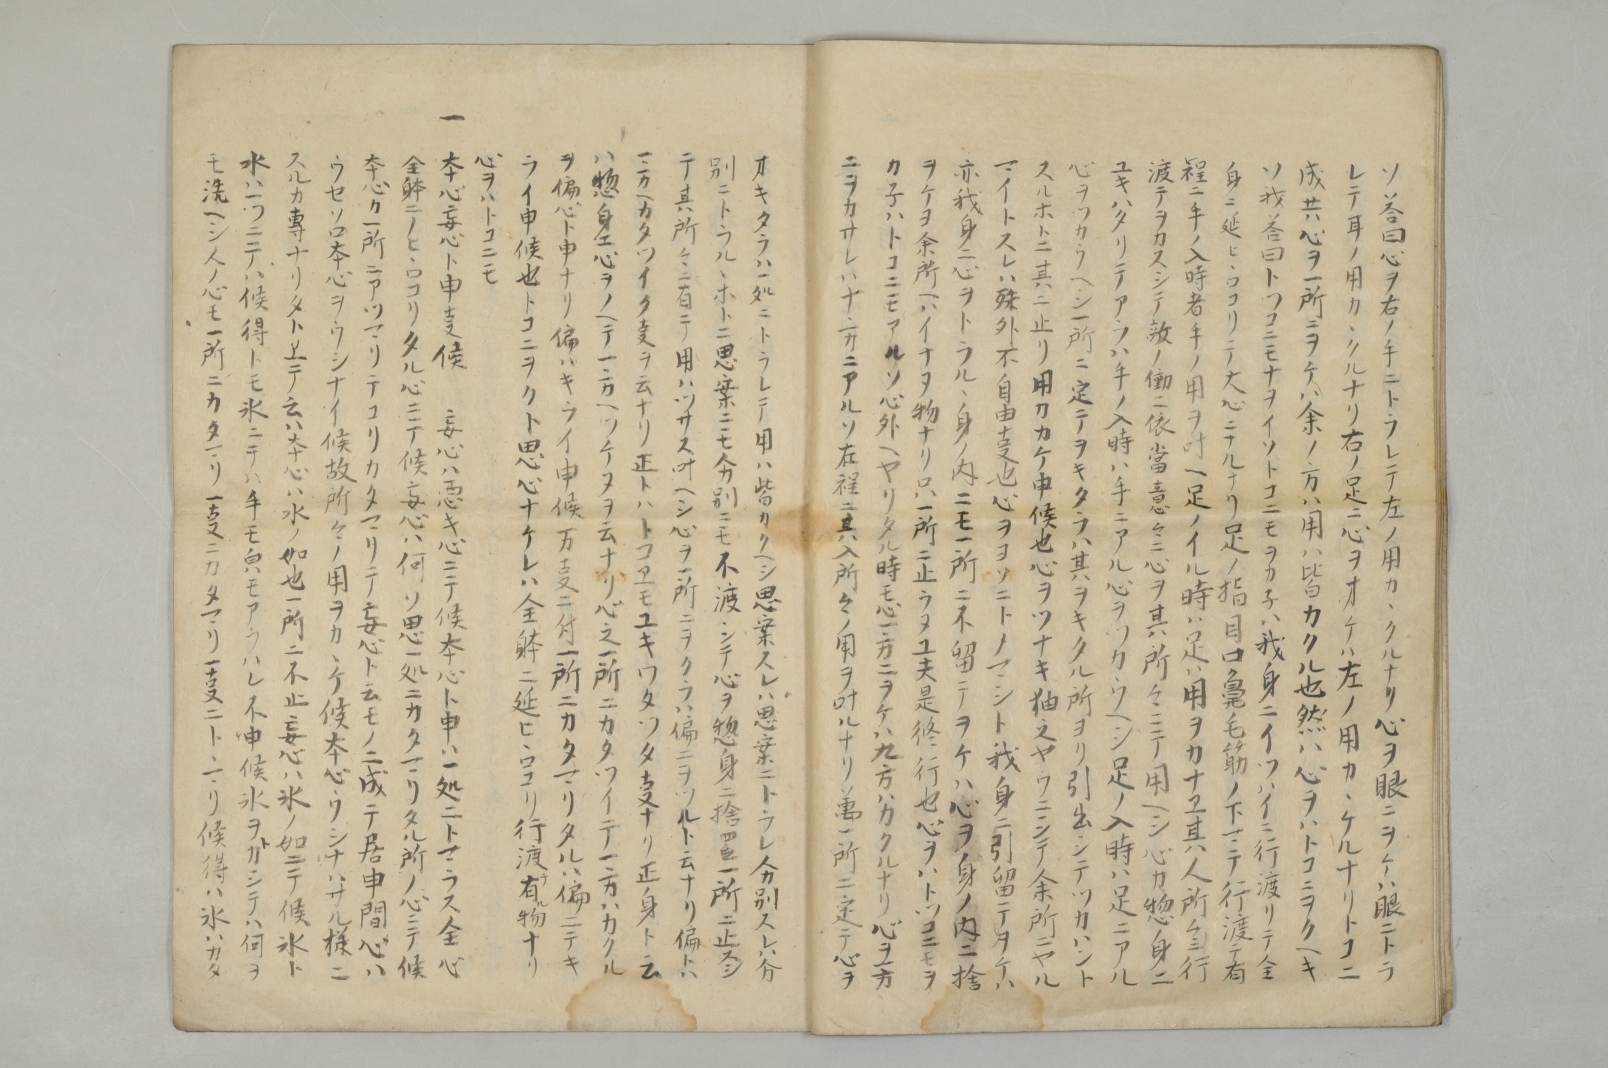 ソ答曰心ヲ右ノ手ニトラレテ左ノ用カヽクルナリ心ヲ眼ニヲケハ眼ニトラ
レテ耳ノ用カヽクルナリ右ノ足ニ心ヲオケハ左ノ用カヽケルナリトコニ
成共心ヲ一所ニヲケハ余ノ方ハ用ハ皆カクル也然ハ心ヲハトコニヲクヘキ
ソ我答曰トツコニモナヲイソトコニモヲカ子ハ我身ニイツハイニ行渡リテ全
身ニ延ヒヽロコリテ大心ニナルナリ足ノ指目口鼻毛筋ノ下マテ行渡テ有
程ニ手ノ入時者手ノ用ヲ叶ヘ足ノイル時ハ足ノ用ヲカナヱ其入所々ニ行
渡テヲカスシテ敵ノ働ニ依當意々ニ心ヲ其所々ニテ用ヘシ心カ惣身ニ
ユキハタリテアラハ手ノ入時ハ手ニアル心ヲツカウヘシ足ノ入時ハ足ニアル
心ヲツカウヘシ一所ニ定テヲキタラハ其ヲキタル所ヨリ引出シテツカハント
スルホトニ其ニ止リ用カカケ申候也心ヲツナキ猫之ヤウニシテ余所ニヤル
マイトスレハ殊外不自由支也心ヲヨソニトノマシト我身ニ引留テヲケハ
亦我身ニ心ヲトラルヽ身ノ内ニモ一所ニ不留テヲケハ心ヲ身ノ内ニ捨
ヲケヨ余所ヘハイナヌ物ナリ只一所ニ止ラヌ工夫是修行也心ヲハトツコニモヲ
カ子ハトコニモアルソ心外ヘヤリタル時モ心一方ニヲケハ九方ハカクルナリ心ヲ一方
ニヲカサレハ十方ニアルソ在程ニ其入所々ノ用ヲ叶ルナリ萬一所ニ定テ心ヲ
オキタラハ一処ニトラレテ用ハ皆カクヘシ思案スレハ思案ニトラレ分別スレハ分
別ニトラルヽホトニ思案ニモ分別ニモ不渡シテ心ヲ惣身ニ捨置一所ニ止スシ
テ其所々ニ有テ用ハツサス叶ヘシ心ヲ一所ニヲクラハ偏ニヲツルト云ナリ偏トハ
一方ヘカタツイタ支ヲ云ナリ正トハトコヱモユキワタツタ支ナリ正身ト云
ハ惣身エ心ヲノヘテ一方ヘツケヌヲ云ナリ心之一所ニカタツイテ一方ハカクル
ヲ偏心ト申ナリ偏ハキライ申候万支ニ付一所ニカタマリタルハ偏ニテキ
ライ申候也トコニヲクト思心ナケレハ全躰ニ延ヒヽロコリ行渡テ有ル物ナリ
心ヲハトコニモ
一 本心妄心ト申支候 妄心ハ悪キ心ニテ候本心ト申ハ一処ニトマラス全心
全躰ニノヒヽロコリタル心ニテ候妄心ハ何ソ思一処ニカタマリタル所ノ心ニテ候
本心カ一所ニアツマリテコリカタマリテ妄心ト云モノニ成テ居申間心ハ
ウセソロ本心ヲウシナイ候故所々ノ用ヲカヽケ候本心ウシナハサル様ニ
スルカ專ナリタト上テ云ハ本心ハ水ノ如也一所ニ不止妄心ハ氷ノ如ニテ候氷ト
水ハ一ツニテハ候得トモ氷ニテハ手モ皃モアラハレ不申候氷ヲトカシテハ何ヲ
モ洗ヘシ人ノ心モ一所ニカタマリ一支ニカタマリ一支ニトヽマリ候得ハ氷ハカタ